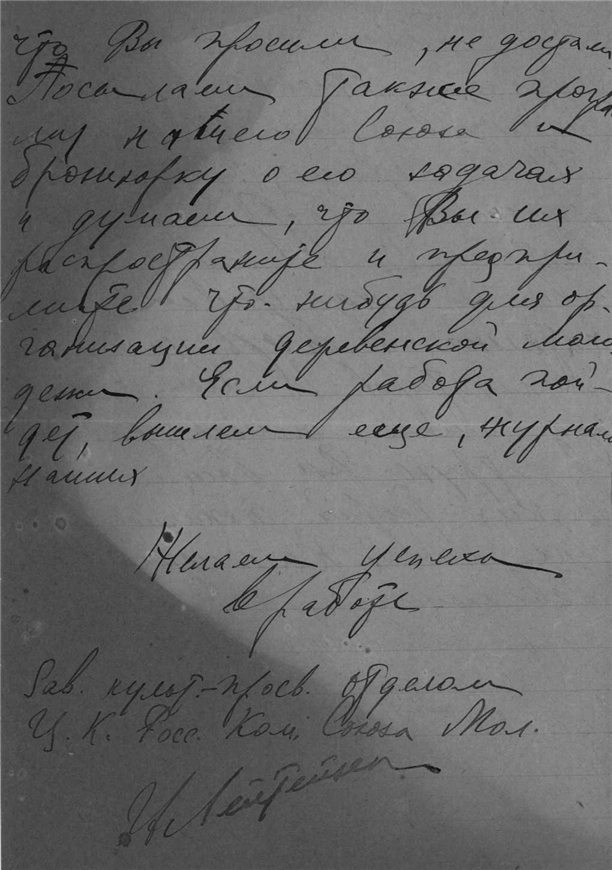 что Вы просили, не достали
Посылаем также програм
му нашего Союза и
брошюрку о его задачах
и думаем, что Вы их
распространите и предпри-
мите что-нибудь для ор-
ганизации деревенской моло
дежи. Если работа пой-
дет, вышлем еще, журналов
наших
Желаем успеха
в работе
Зав. культ.-просв. отделом
Ц. К. Росс. Ком. Союза Мол.